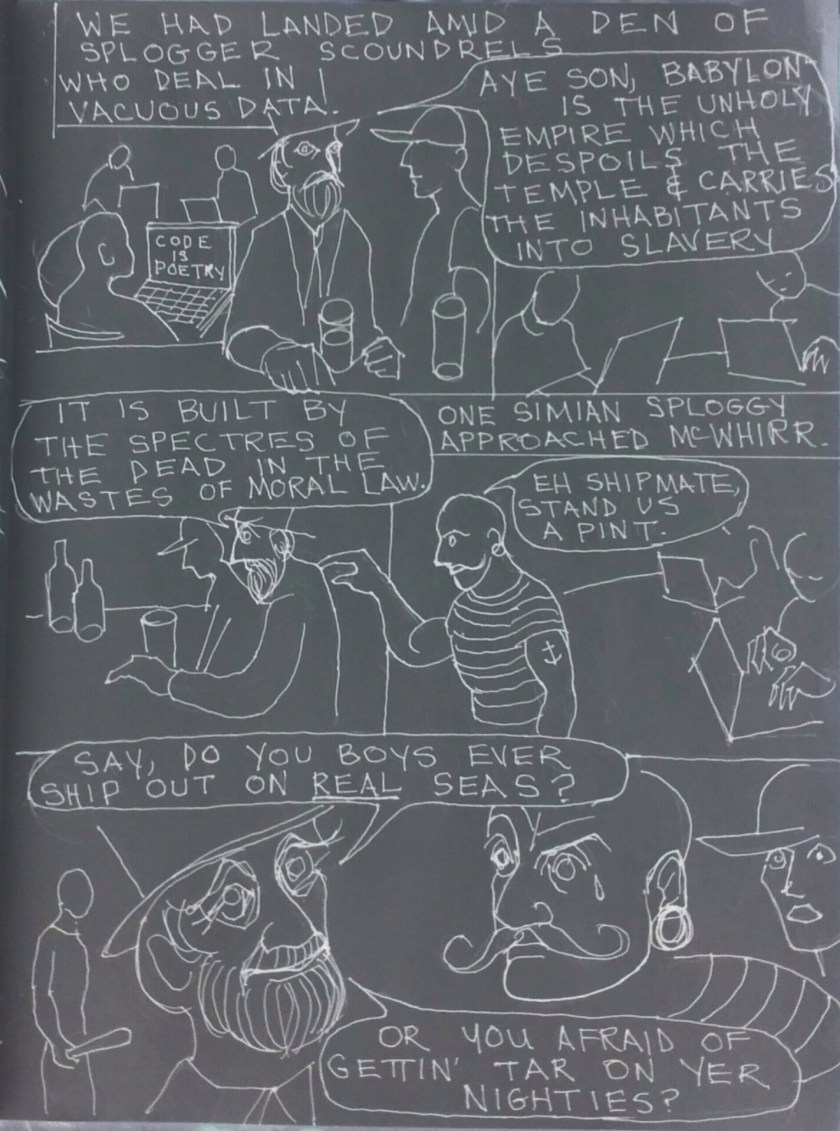 WE HAD LANDED AMID A DEN OF
SPLOGGER SCOUNDRELS
WHO DEAL IN
VACUOUS DATA.
AYE SON, BABYLON
IS THE UNHOLY
EMPIRE WHICH
DESPOILS THE
TEMPLE & CARRIES
THE INHABITANTS
INTO SLAVERY
CODE
IS
POETRY
IT IS BUILT BY
THE SPECTRES OF
THE DEAD IN THE
WASTES OF MORAL LAW.
ONE SIMIAN SPLOGGY
APPROACHED McWHIRR.
EH SHIPMATE,
STAND US
A PINT.
SAY, DO YOU BOYS EVER
SHIP OUT ON REAL SEAS?
OR YOU AFRAID OF
GETTIN' TAR ON YER
NIGHTIES?